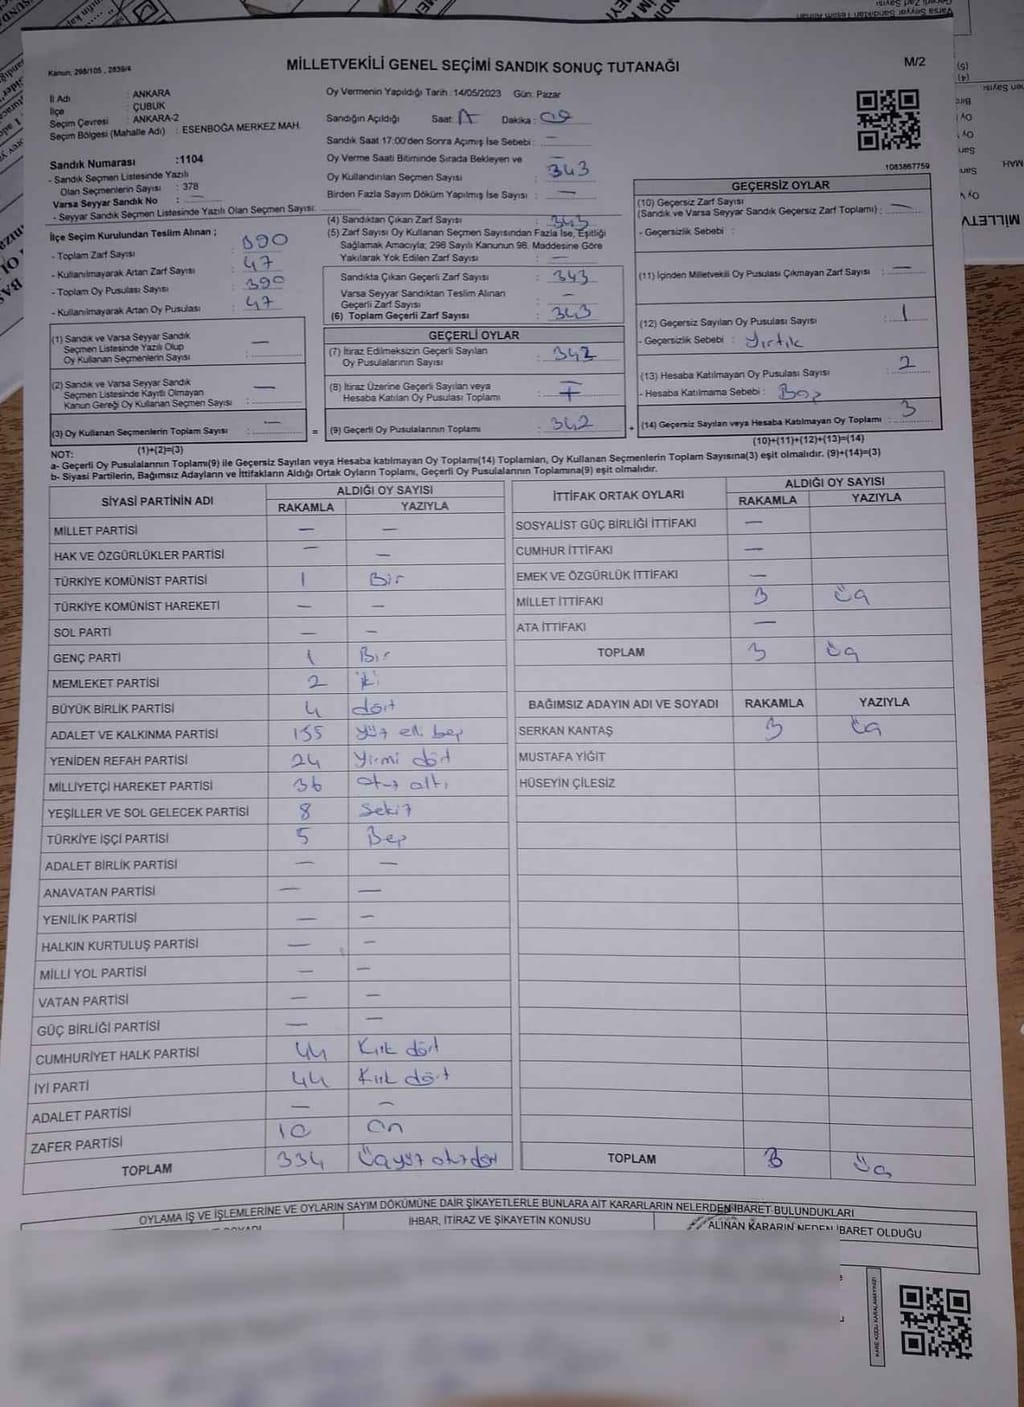 Kanun: 298/105 , 2839/4
MİLLETVEKİLİ GENEL SEÇİMİ SANDIK SONUÇ TUTANAĞI
M/2
İl Adı : ANKARA
İlçe : ÇUBUK
Seçim Çevresi : ANKARA-2
Seçim Bölgesi (Mahalle Adı) : ESENBOĞA MERKEZ MAH.
Sandık Numarası :1104
- Sandık Seçmen Listesinde Yazılı
Olan Seçmenlerin Sayısı : 378
Varsa Seyyar Sandık No : —
- Seyyar Sandık Seçmen Listesinde Yazılı Olan Seçmen Sayısı:
İlçe Seçim Kurulundan Teslim Alınan ;
- Toplam Zarf Sayısı : 390
- Kullanılmayarak Artan Zarf Sayısı : 47
- Toplam Oy Pusulası Sayısı : 390
- Kullanılmayarak Artan Oy Pusulası : 47
(1) Sandık ve Varsa Seyyar Sandık
Seçmen Listesinde Yazılı Olup
Oy Kullanan Seçmenlerin Sayısı : —
(2) Sandık ve Varsa Seyyar Sandık
Seçmen Listesinde Kayıtlı Olmayan
Kanun Gereği Oy Kullanan Seçmen Sayısı : —
(3) Oy Kullanan Seçmenlerin Toplam Sayısı : —
(1)+(2)=(3)
Oy Vermenin Yapıldığı Tarih : 14/05/2023 Gün: Pazar
Sandığın Açıldığı Saat: Dakika :
Sandık Saat 17:00'den Sonra Açımış İse Sebebi : —
Oy Verme Saati Bitiminde Sırada Bekleyen ve —
Oy Kullandırılan Seçmen Sayısı : 343
Birden Fazla Sayım Döküm Yapılmış İse Sayısı : —
(4) Sandıktan Çıkan Zarf Sayısı : 343
(5) Zarf Sayısı Oy Kullanan Seçmen Sayısından Fazla İse, Eşitliği
Sağlamak Amacıyla; 298 Sayılı Kanunun 98. Maddesine Göre
Yakılarak Yok Edilen Zarf Sayısı : —
Sandıkta Çıkan Geçerli Zarf Sayısı : 343
Varsa Seyyar Sandıktan Teslim Alınan
Geçerli Zarf Sayısı : —
(6) Toplam Geçerli Zarf Sayısı : 343
GEÇERLİ OYLAR
(7) İtiraz Edilmeksizin Geçerli Sayılan
Oy Pusulalarının Sayısı : 342
(8) İtiraz Üzerine Geçerli Sayılan veya
Hesaba Katılan Oy Pusulası Toplamı :
= (9) Geçerli Oy Pusulalarının Toplamı : 342 +
1083867759
GEÇERSİZ OYLAR
(10) Geçersiz Zarf Sayısı
(Sandık ve Varsa Seyyar Sandık Geçersiz Zarf Toplamı) : —
- Geçersizlik Sebebi :
(11) İçinden Milletvekili Oy Pusulası Çıkmayan Zarf Sayısı : —
(12) Geçersiz Sayılan Oy Pusulası Sayısı : 1
- Geçersizlik Sebebi : Yırtık
(13) Hesaba Katılmayan Oy Pusulası Sayısı : 2
- Hesaba Katılmama Sebebi : Boş
(14) Geçersiz Sayılan veya Hesaba Katılmayan Oy Toplamı : 3
(10)+(11)+(12)+(13)=(14)
NOT:
a- Geçerli Oy Pusulalarının Toplamı(9) ile Geçersiz Sayılan veya Hesaba katılmayan Oy Toplamı(14) Toplamları, Oy Kullanan Seçmenlerin Toplam Sayısına(3) eşit olmalıdır. (9)+(14)=(3)
b- Siyasi Partilerin, Bağımsız Adayların ve İttifakların Aldığı Ortak Oyların Toplamı, Geçerli Oy Pusulalarının Toplamına(9) eşit olmalıdır.
SİYASİ PARTİNİN ADI ALDIĞI OY SAYISI
RAKAMLA YAZIYLA
MİLLET PARTİSİ — —
HAK VE ÖZGÜRLÜKLER PARTİSİ — —
TÜRKİYE KOMÜNİST PARTİSİ 1 Bir
TÜRKİYE KOMÜNİST HAREKETİ — —
SOL PARTİ — —
GENÇ PARTİ 1 Bir
MEMLEKET PARTİSİ 2 iki
BÜYÜK BİRLİK PARTİSİ 4 dört
ADALET VE KALKINMA PARTİSİ 155 yüz elli beş
YENİDEN REFAH PARTİSİ 24 Yirmi dört
MİLLİYETÇİ HAREKET PARTİSİ 36 otuz altı
YEŞİLLER VE SOL GELECEK PARTİSİ 8 Sekiz
TÜRKİYE İŞÇİ PARTİSİ 5 Beş
ADALET BİRLİK PARTİSİ — —
ANAVATAN PARTİSİ — —
YENİLİK PARTİSİ — —
HALKIN KURTULUŞ PARTİSİ — —
MİLLİ YOL PARTİSİ — —
VATAN PARTİSİ — —
GÜÇ BİRLİĞİ PARTİSİ — —
CUMHURİYET HALK PARTİSİ 44 Kırk dört
İYİ PARTİ 44 Kırk dört
ADALET PARTİSİ — —
ZAFER PARTİSİ 10 On
TOPLAM 334 Üçyüz otuz dört
İTTİFAK ORTAK OYLARI ALDIĞI OY SAYISI
RAKAMLA YAZIYLA
SOSYALİST GÜÇ BİRLİĞİ İTTİFAKI —
CUMHUR İTTİFAKI —
EMEK VE ÖZGÜRLÜK İTTİFAKI —
MİLLET İTTİFAKI 3 Üç
ATA İTTİFAKI —
TOPLAM 3 Üç
BAĞIMSIZ ADAYIN ADI VE SOYADI RAKAMLA YAZIYLA
SERKAN KANTAŞ 3 Üç
MUSTAFA YİĞİT
HÜSEYİN ÇİLESİZ
TOPLAM 3 Üç
OYLAMA İŞ VE İŞLEMLERİNE VE OYLARIN SAYIM DÖKÜMÜNE DAİR ŞİKAYETLERLE BUNLARA AİT KARARLARIN NELERDEN İBARET BULUNDUKLARI
İHBAR, İTİRAZ VE ŞİKAYETİN KONUSU
ALINAN KARARIN NEDEN İBARET OLDUĞU